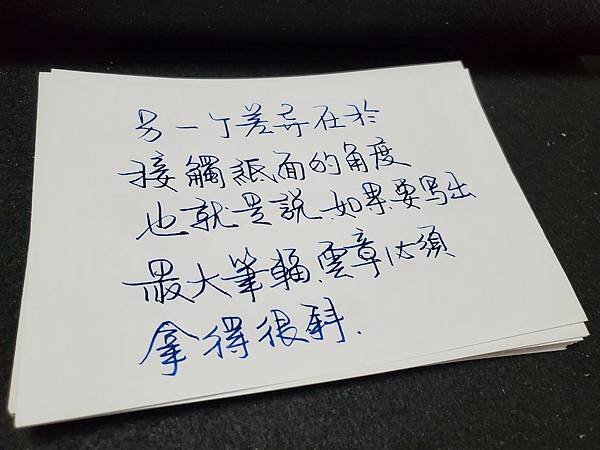 另一个差异在於
接觸紙面的角度
也就是説,如果要写出
最大筆幅,雲章必須
拿得很斜.